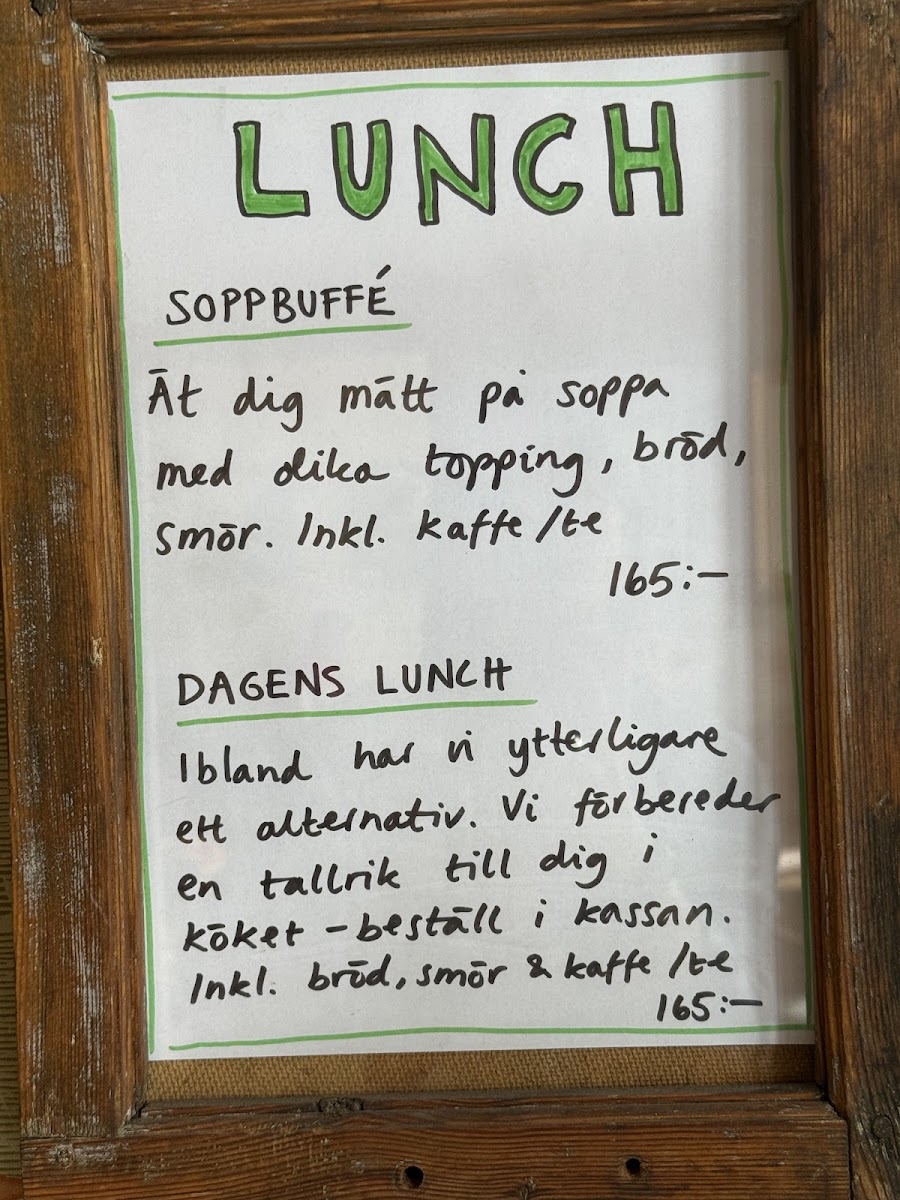 LUNCH
SOPPBUFFÉ
Ät dig mätt på soppa
med olika topping, bröd,
smör. Inkl. kaffe/te
165:-
DAGENS LUNCH
Ibland har vi ytterligare
ett alternativ. Vi förbereder
en tallrik till dig i
köket - beställ i kassan.
Inkl. bröd, smör & kaffe/te
165:-